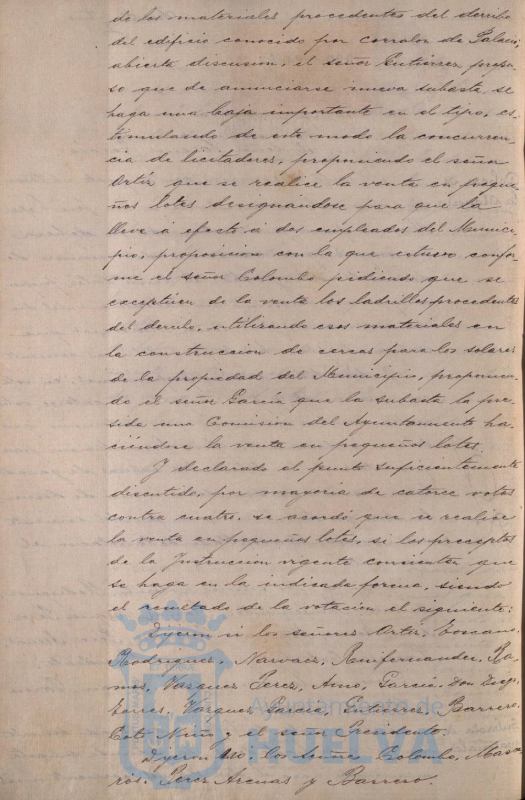 de los materiales procedentes del derribo
del edificio conocido por corralon de Palacio;
abierta discusion, el señor Gutierrez propu-
so que de anunciarse nueva subasta se
haga una baja importante en el tipo, es-
timulando de este modo la concurren-
cia de licitadores, proponiendo el señor
Ortiz que se realice la venta en peque-
ños lotes designandose para que la
lleve á efecto á dos empleados del Munici-
pio, proposicion con la que estuvo confor-
me el señor Colombo pidiendo que se
exceptúen de la venta los ladrillos procedentes
del derribo, utilizando esos materiales en
la construccion de cercas para los solares
de la propiedad del Municipio, proponien-
do el señor García que la subasta la pre-
sida una Comision del Ayuntamiento ha-
ciéndose la venta en pequeños lotes.
Y declarado el punto suficientemente
discutido, por mayoria de catorce votos
contra cuatro, se acordó que se realice
la venta en pequeños lotes, si los preceptos
de la Instruccion vigente consienten que
se haga en la indicada forma, siendo
el resultado de la votacion el siguiente:
Dijeron si los señores Ortiz, Toscano,
Rodriguez, Narvaez, Ra-
mos, Vazquez Perez, García, Don
Vazquez García, Gutierrez, Barrero,
Niño y el señor Presidente.
Dijeron no, los Señores Colombo,
Perez Arenas y Barrero.
Ayuntamiento de
HUELVA